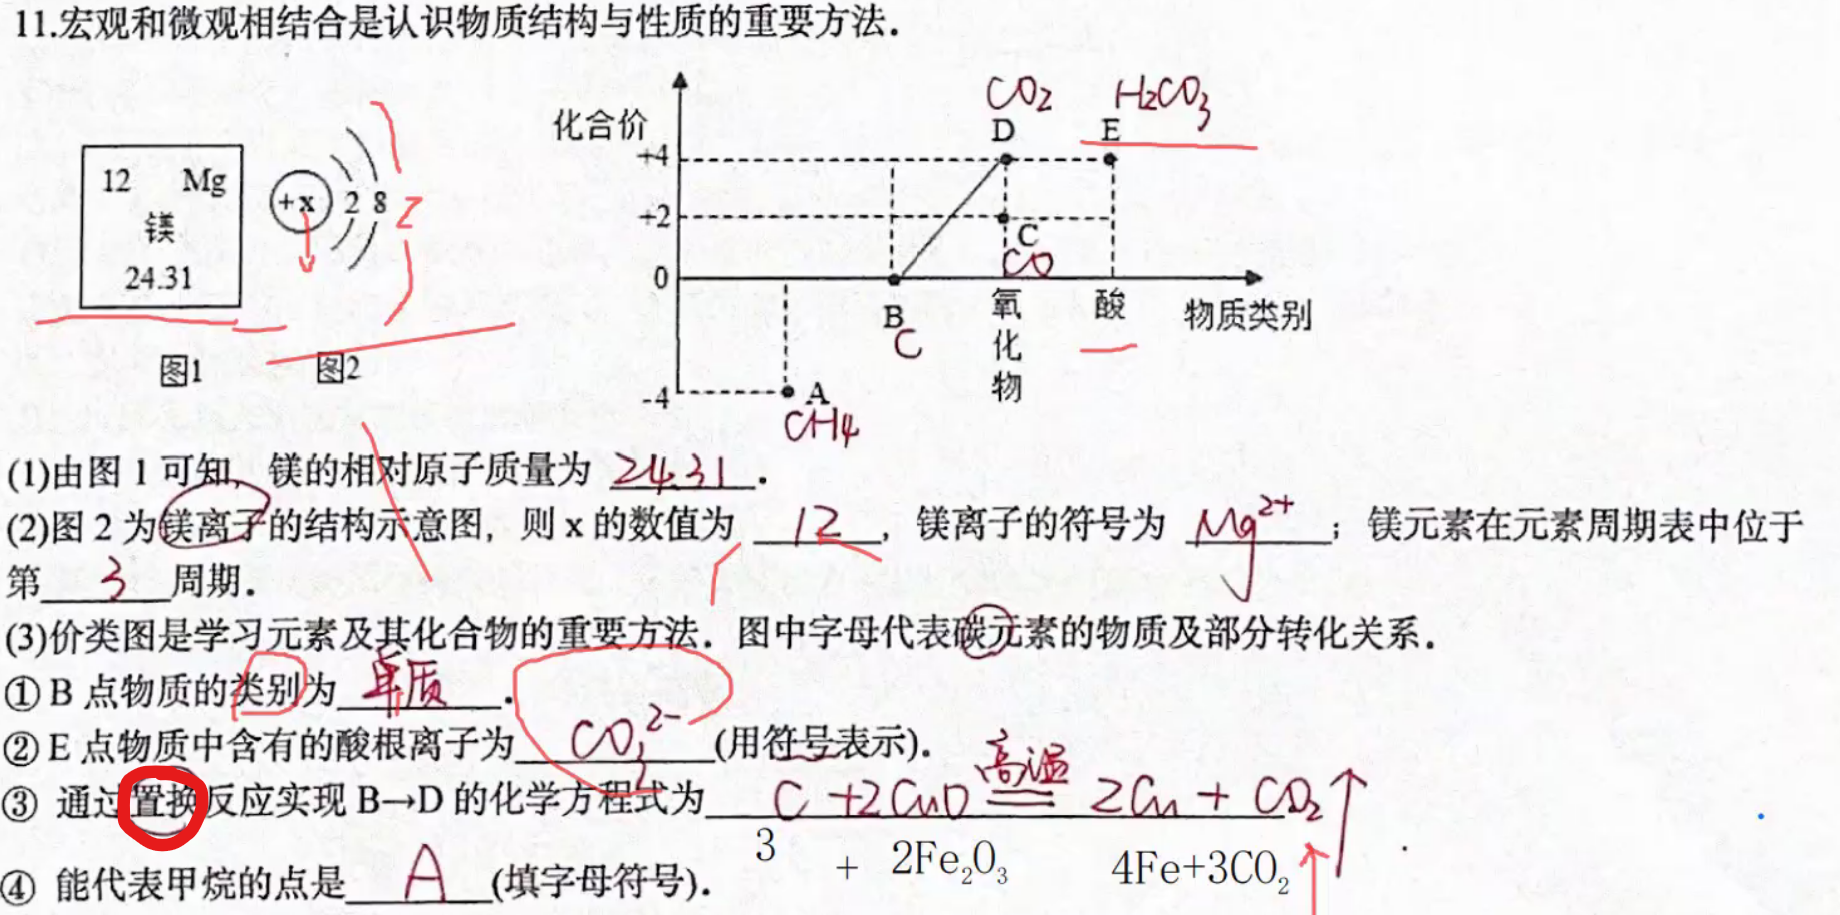 11.宏观和微观相结合是认识物质结构与性质的重要方法.
12 Mg
镁
24.31
图1
+x 2 8 2
图2
化合价
CO2 H2CO3
D E
+4
+2
C
CO
0
B
C
氧化物
酸
物质类别
-4
A
CH4
(1)由图 1 可知, 镁的相对原子质量为 24.31 .
(2)图 2 为镁离子的结构示意图, 则 x 的数值为 12 , 镁离子的符号为 Mg²⁺ ; 镁元素在元素周期表中位于
第 3 周期.
(3)价类图是学习元素及其化合物的重要方法. 图中字母代表碳元素的物质及部分转化关系.
① B 点物质的类别为 单质 .
② E 点物质中含有的酸根离子为 CO₃²⁻ (用符号表示).
③ 通过置换反应实现 B→D 的化学方程式为 C +2CuO 高温 2Cu + CO₂↑ .
3 + 2Fe₂O₃ 4Fe+3CO₂ ↑
④ 能代表甲烷的点是 A (填字母符号).